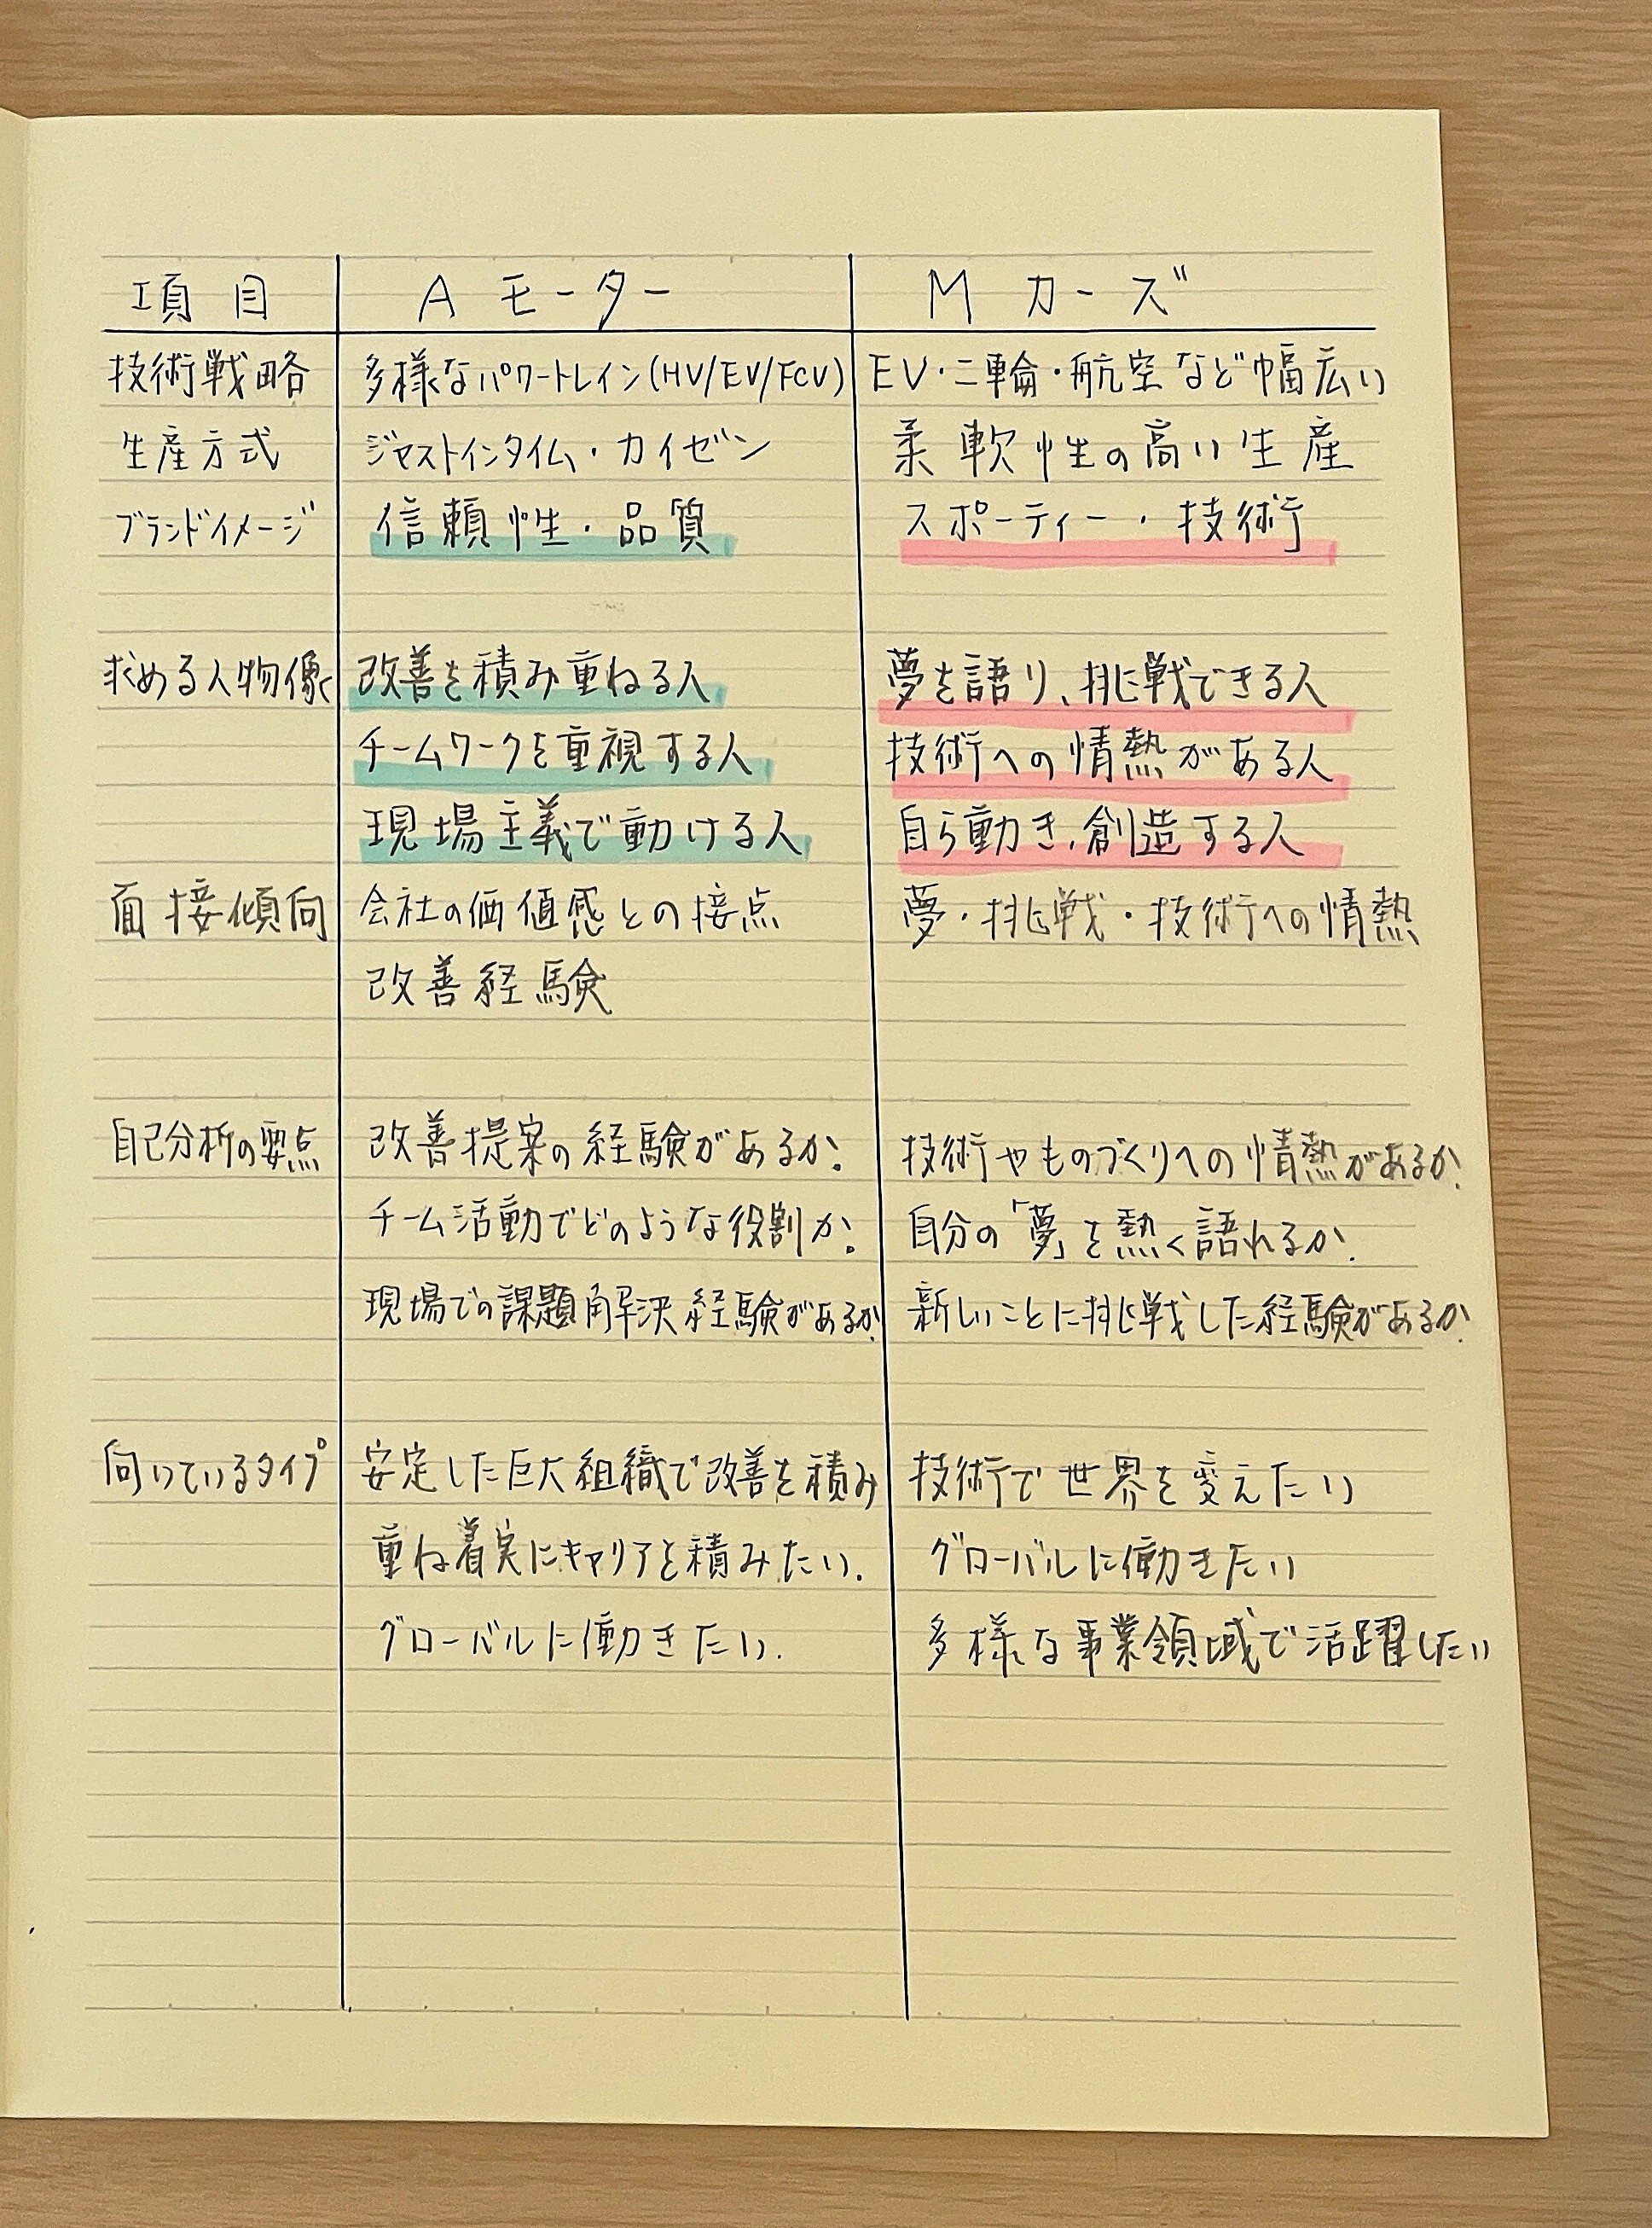 項目 Aモーター Mカーズ
技術戦略 多様なパワートレイン(HV/EV/FCV) EV・二輪・航空など幅広い
生産方式 ジャストインタイム・カイゼン 柔軟性の高い生産
ブランドイメージ 信頼性・品質 スポーティー・技術
求める人物像 改善を積み重ねる人 夢を語り、挑戦できる人
チームワークを重視する人 技術への情熱がある人
現場主義で動ける人 自ら動き、創造する人
面接傾向 会社の価値感との接点 夢・挑戦・技術への情熱
改善経験
自己分析の要点 改善提案の経験があるか。 技術やものづくりへの情熱があるか。
チーム活動でどのような役割か。 自分の「夢」を熱く語れるか。
現場での課題解決経験があるか。 新しいことに挑戦した経験があるか。
向いているタイプ 安定した巨大組織で改善を積み 技術で世界を変えたい
重ね着実にキャリアを積みたい。 グローバルに働きたい
グローバルに働きたい。 多様な事業領域で活躍したい